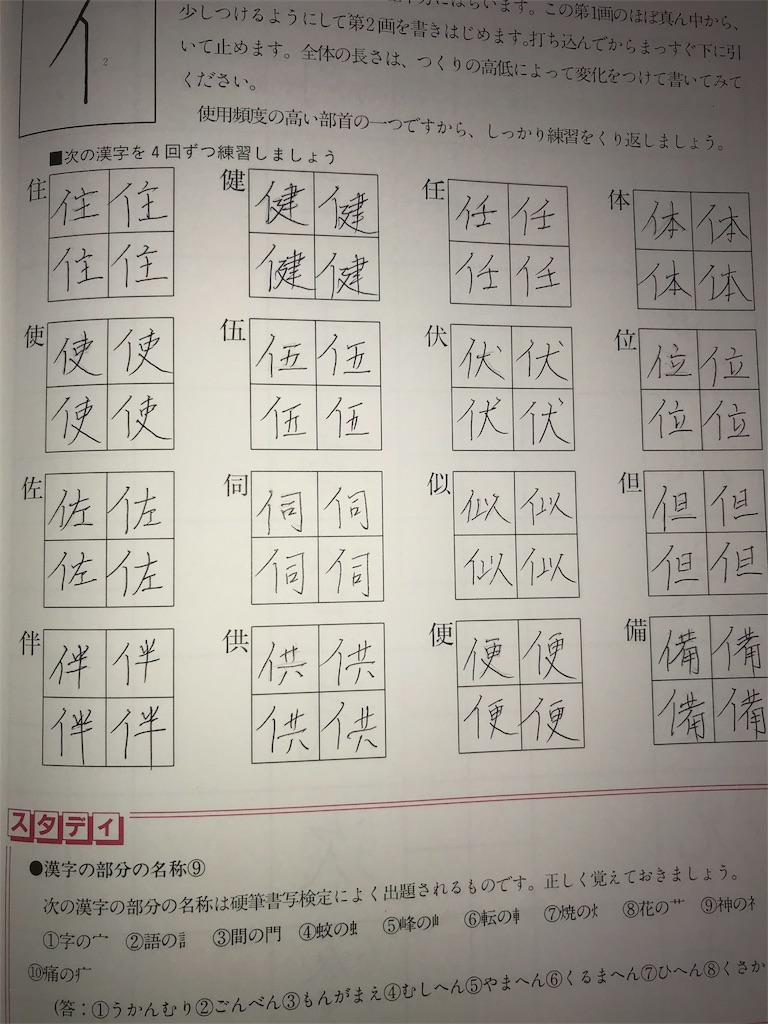 イ
2
少しつけるようにして第2画を書きはじめます。打ち込んでからまっすぐ下に引
いて止めます。全体の長さは、つくりの高低によって変化をつけて書いてみて
ください。
使用頻度の高い部首の一つですから、しっかり練習をくり返しましょう。
■次の漢字を4回ずつ練習しましょう
住 住 住 健 健 健 任 任 任 体 体 体
住 住 健 健 任 任 体 体
使 使 使 伍 伍 伍 伏 伏 伏 位 位 位
使 使 伍 伍 伏 伏 位 位
佐 佐 佐 伺 伺 伺 似 似 似 但 但 但
佐 佐 伺 伺 似 似 但 但
伴 伴 伴 供 供 供 便 便 便 備 備 備
伴 伴 供 供 便 便 備 備
スタディ
●漢字の部分の名称⑨
次の漢字の部分の名称は硬筆書写検定によく出題されるものです。正しく覚えておきましょう。
①字の宀 ②語の訁 ③間の門 ④蚊の虫 ⑤峰の山 ⑥転の車 ⑦焼の火 ⑧花の艹 ⑨神の礻
⑩痛の疒
(答：①うかんむり②ごんべん③もんがまえ④むしへん⑤やまへん⑥くるまへん⑦ひへん⑧くさか